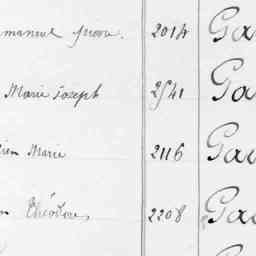 manuel 2014 Ga
Marie Joseph 2541 Ga
ien Marie 2116 Gau
n Théodore 2208 Gau